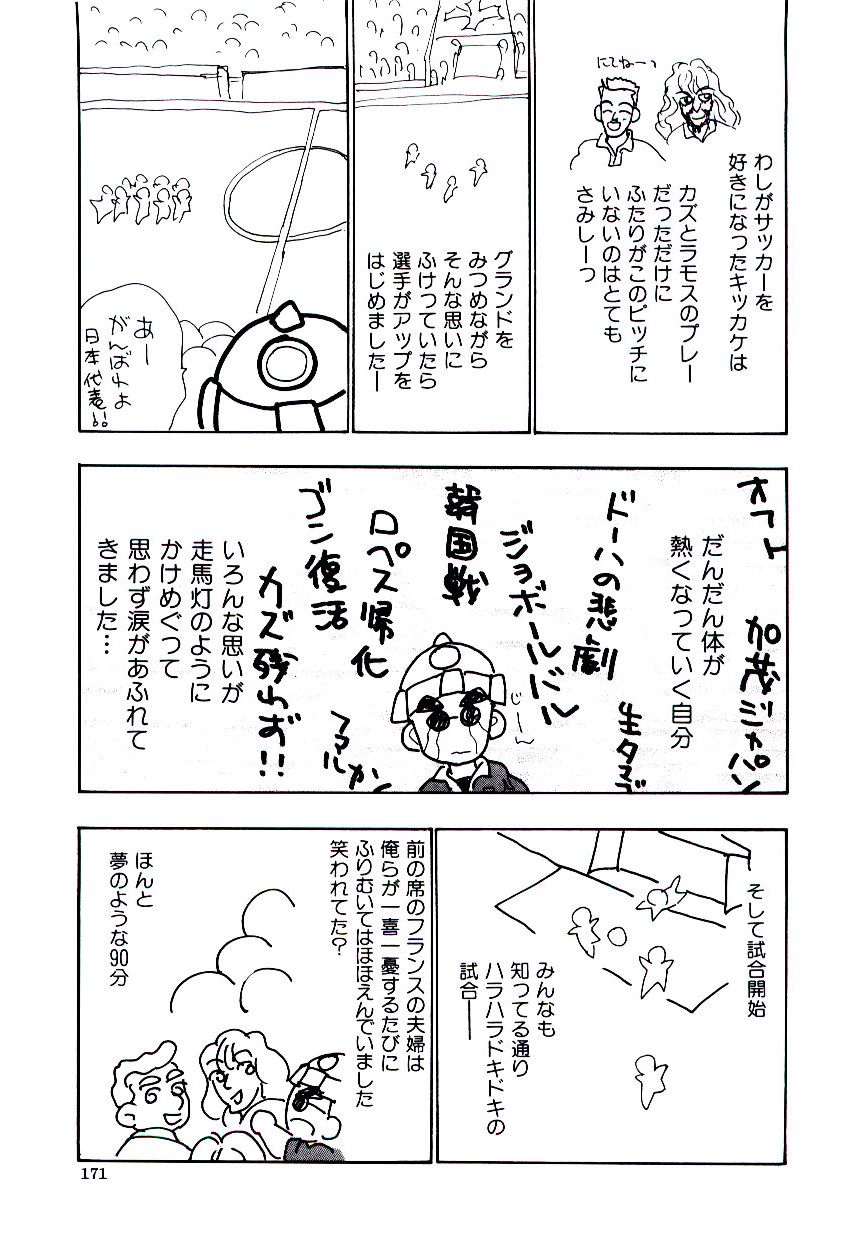 わしがサッカーを
好きになったキッカケは
カズとラモスのプレー
だっただけに
ふたりがこのピッチに
いないのはとても
さみしーっ
にてねーっ
グランドを
みつめながら
そんな思いに
ふけっていたら
選手がアップを
はじめましたー
あー
がんばれよ
日本代表!!
オフト
加茂ジャパン
だんだん体が
熱くなっていく自分
ドーハの悲劇
生タマゴ
ジョホールバル
じーん
韓国戦
ロペス帰化
ファルカン
ゴン復活
カズ残れず!!
いろんな思いが
走馬灯のように
かけめぐって
思わず涙があふれて
きました…
そして試合開始
みんなも
知ってる通り
ハラハラドキドキの
試合――
前の席のフランスの夫婦は
俺らが一喜一憂するたびに
ふりむいてはほほえんでいました
笑われてた?
ほんと
夢のような90分
171